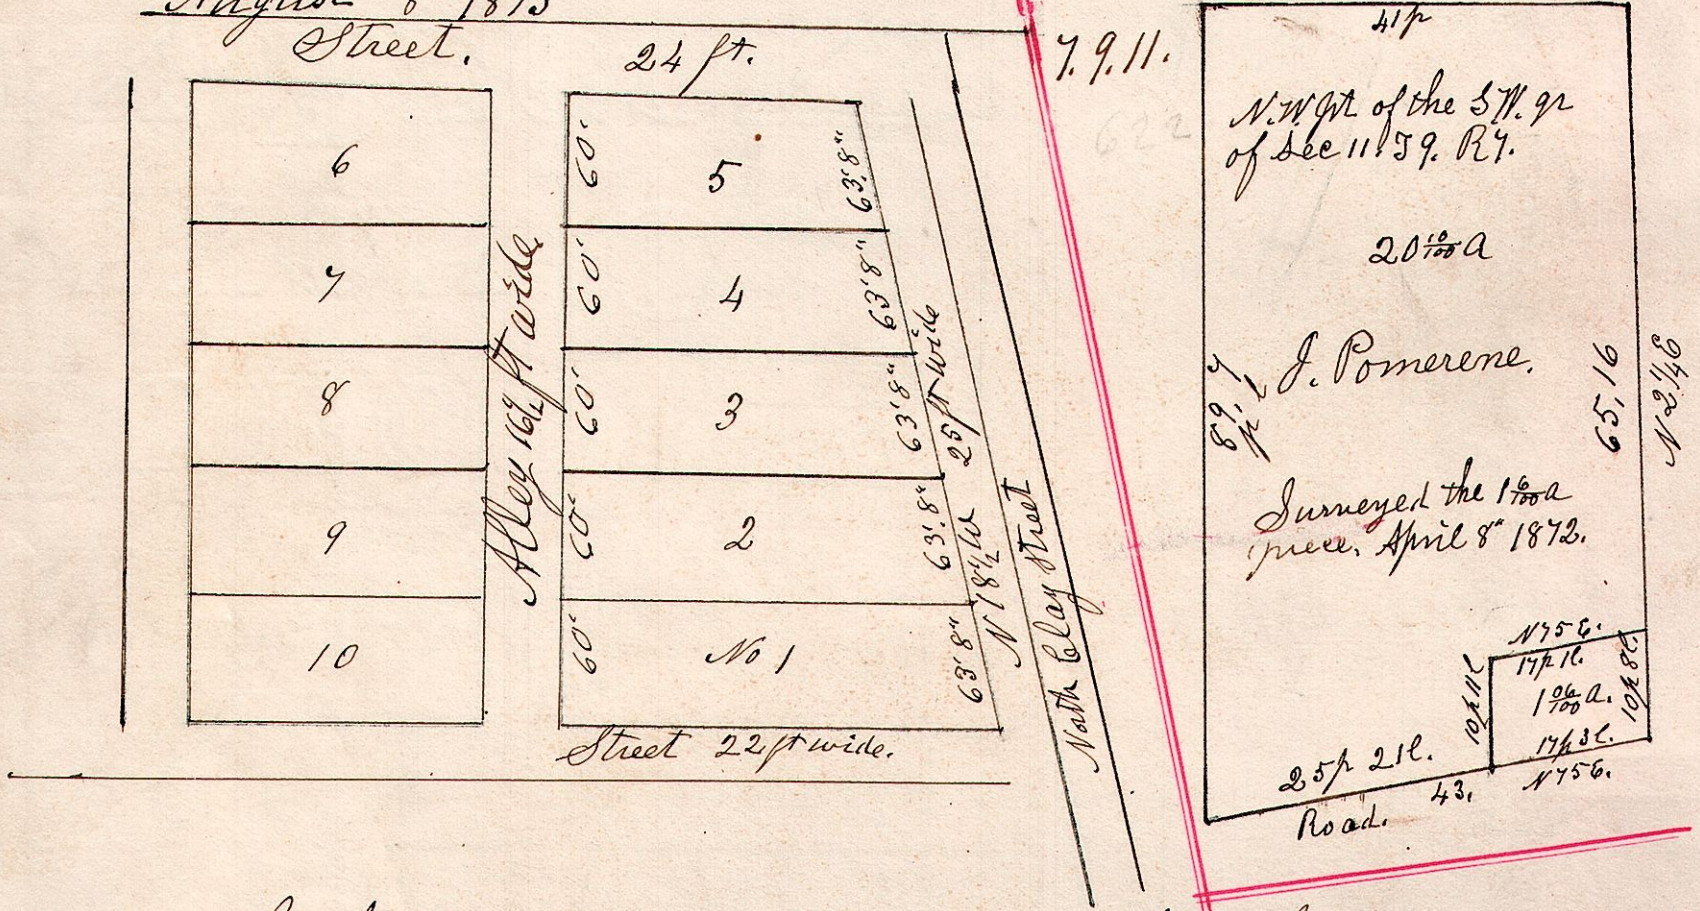 August 8" 1873
Street. 24 ft.
6
7
8
9
10
Alley 16½ ft wide
60'
5
63'.8"
60'
4
63'8"
60'
3
63'8"
60'
2
63'.8"
60'
No 1
63'8"
25 ft wide
N 18½ W
North Clay Street
Street 22 ft wide.
7.9.11.
622
41p
N.W. pt of the S.W. qr
of sec 11. T9. R7.
20 10/100 A
J. Pomerene.
89.7
65,16
N 2¼ E
Surveyed the 1 6/100 a
piece. April 8" 1872.
N75 E.
17p 1l.
10p 11l
1 06/100 a.
10p 8l.
17p 3l.
N75 E.
25p 21l.
43.
Road.